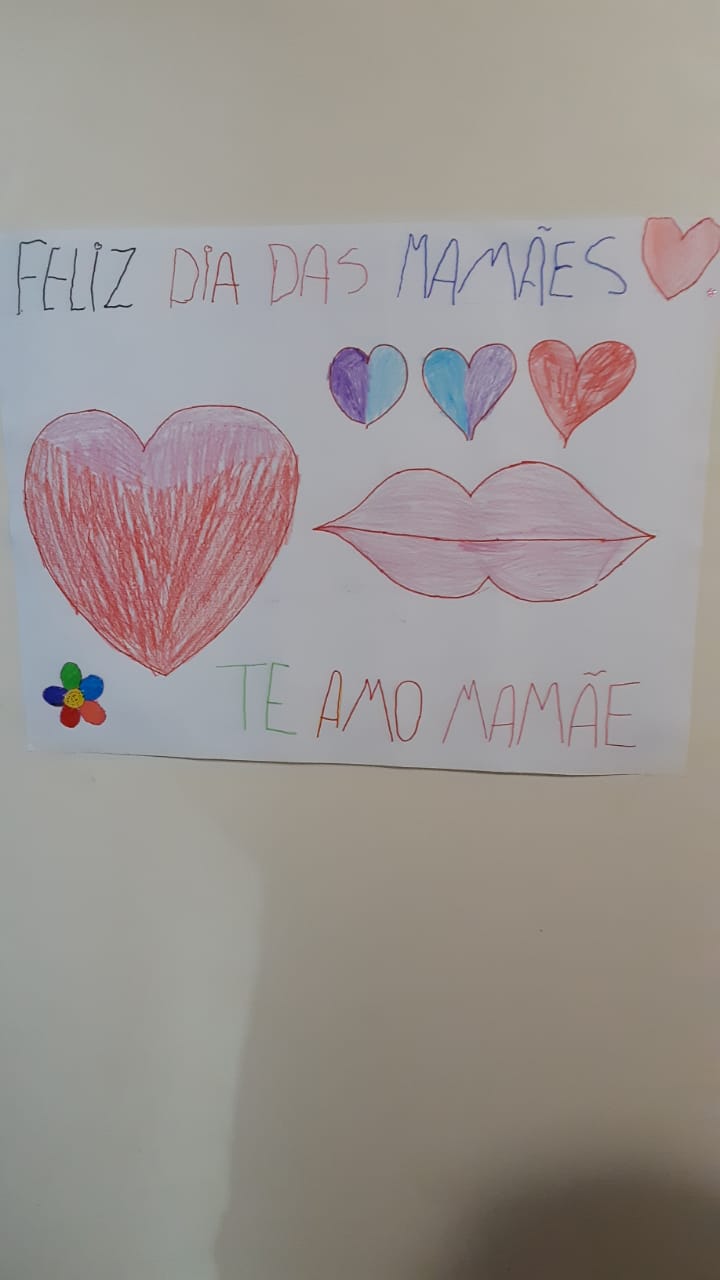 FELIZ DIA DAS MAMÃES
TE AMO MAMÃE